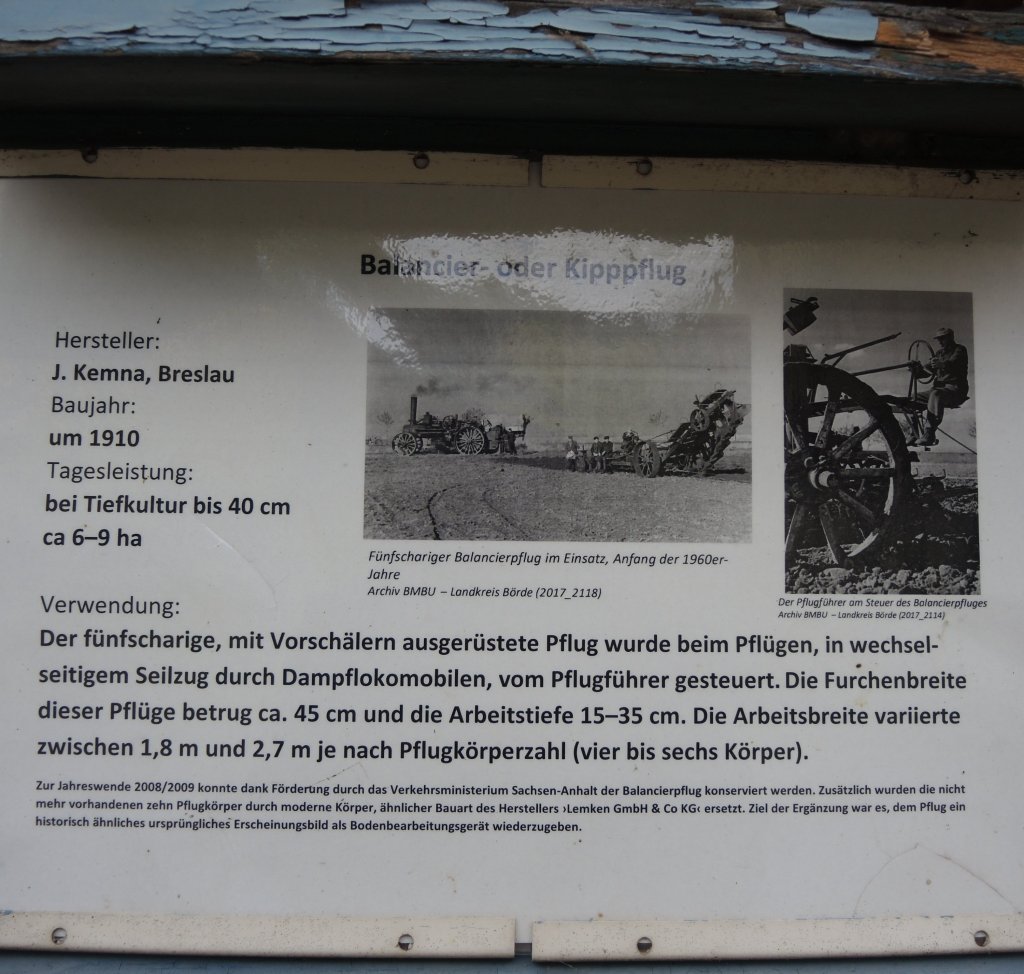 Balancier- oder Kipppflug
Hersteller:
J. Kemna, Breslau
Baujahr:
um 1910
Tagesleistung:
bei Tiefkultur bis 40 cm
ca 6–9 ha
Fünfschariger Balancierpflug im Einsatz, Anfang der 1960er-
Jahre
Archiv BMBU – Landkreis Börde (2017_2118)
Der Pflugführer am Steuer des Balancierpfluges
Archiv BMBU – Landkreis Börde (2017_2114)
Verwendung:
Der fünfscharige, mit Vorschälern ausgerüstete Pflug wurde beim Pflügen, in wechsel-
seitigem Seilzug durch Dampflokomobilen, vom Pflugführer gesteuert. Die Furchenbreite
dieser Pflüge betrug ca. 45 cm und die Arbeitstiefe 15–35 cm. Die Arbeitsbreite variierte
zwischen 1,8 m und 2,7 m je nach Pflugkörperzahl (vier bis sechs Körper).
Zur Jahreswende 2008/2009 konnte dank Förderung durch das Verkehrsministerium Sachsen-Anhalt der Balancierpflug konserviert werden. Zusätzlich wurden die nicht
mehr vorhandenen zehn Pflugkörper durch moderne Körper, ähnlicher Bauart des Herstellers ›Lemken GmbH & Co KG‹ ersetzt. Ziel der Ergänzung war es, dem Pflug ein
historisch ähnliches ursprüngliches Erscheinungsbild als Bodenbearbeitungsgerät wiederzugeben.